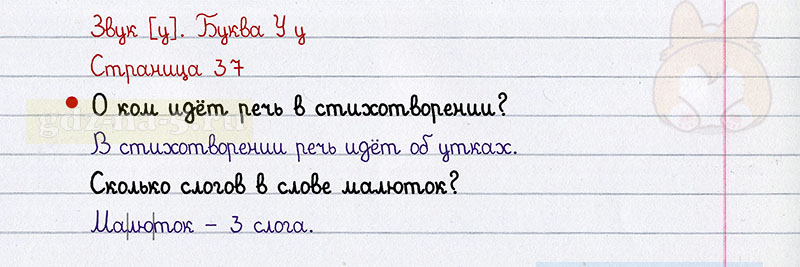 Звук [у]. Буква У у
Страница 37
О ком идёт речь в стихотворении?
gdz-na-5.ru
В стихотворении речь идёт об утках.
Сколько слогов в слове малюток?
Ма|лю|ток – 3 слога.